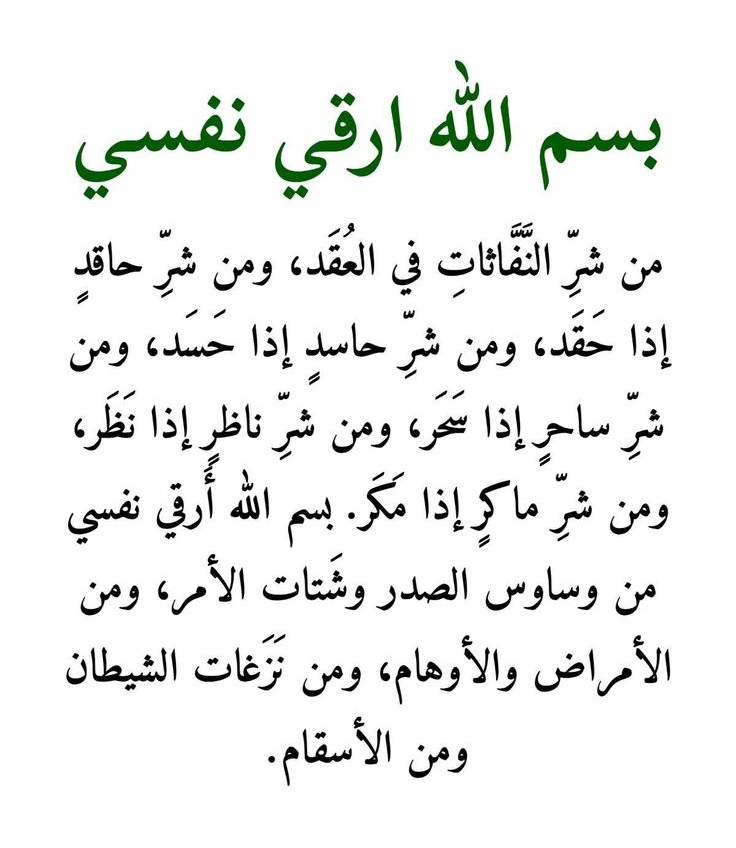 بسم الله ارقي نفسي
من شرِّ النَّفَّاثاتِ في العُقَد، ومن شرِّ حاقدٍ
إذا حَقَد، ومن شرِّ حاسدٍ إذا حَسَد، ومن
شرِّ ساحرٍ إذا سَحَر، ومن شرِّ ناظرٍ إذا نَظَر،
ومن شرِّ ماكرٍ إذا مَكَر. بسم الله أَرقي نفسي
من وساوس الصدر وشَتات الأمر، ومن
الأمراض والأوهام، ومن نَزَغات الشيطان
ومن الأسقام.